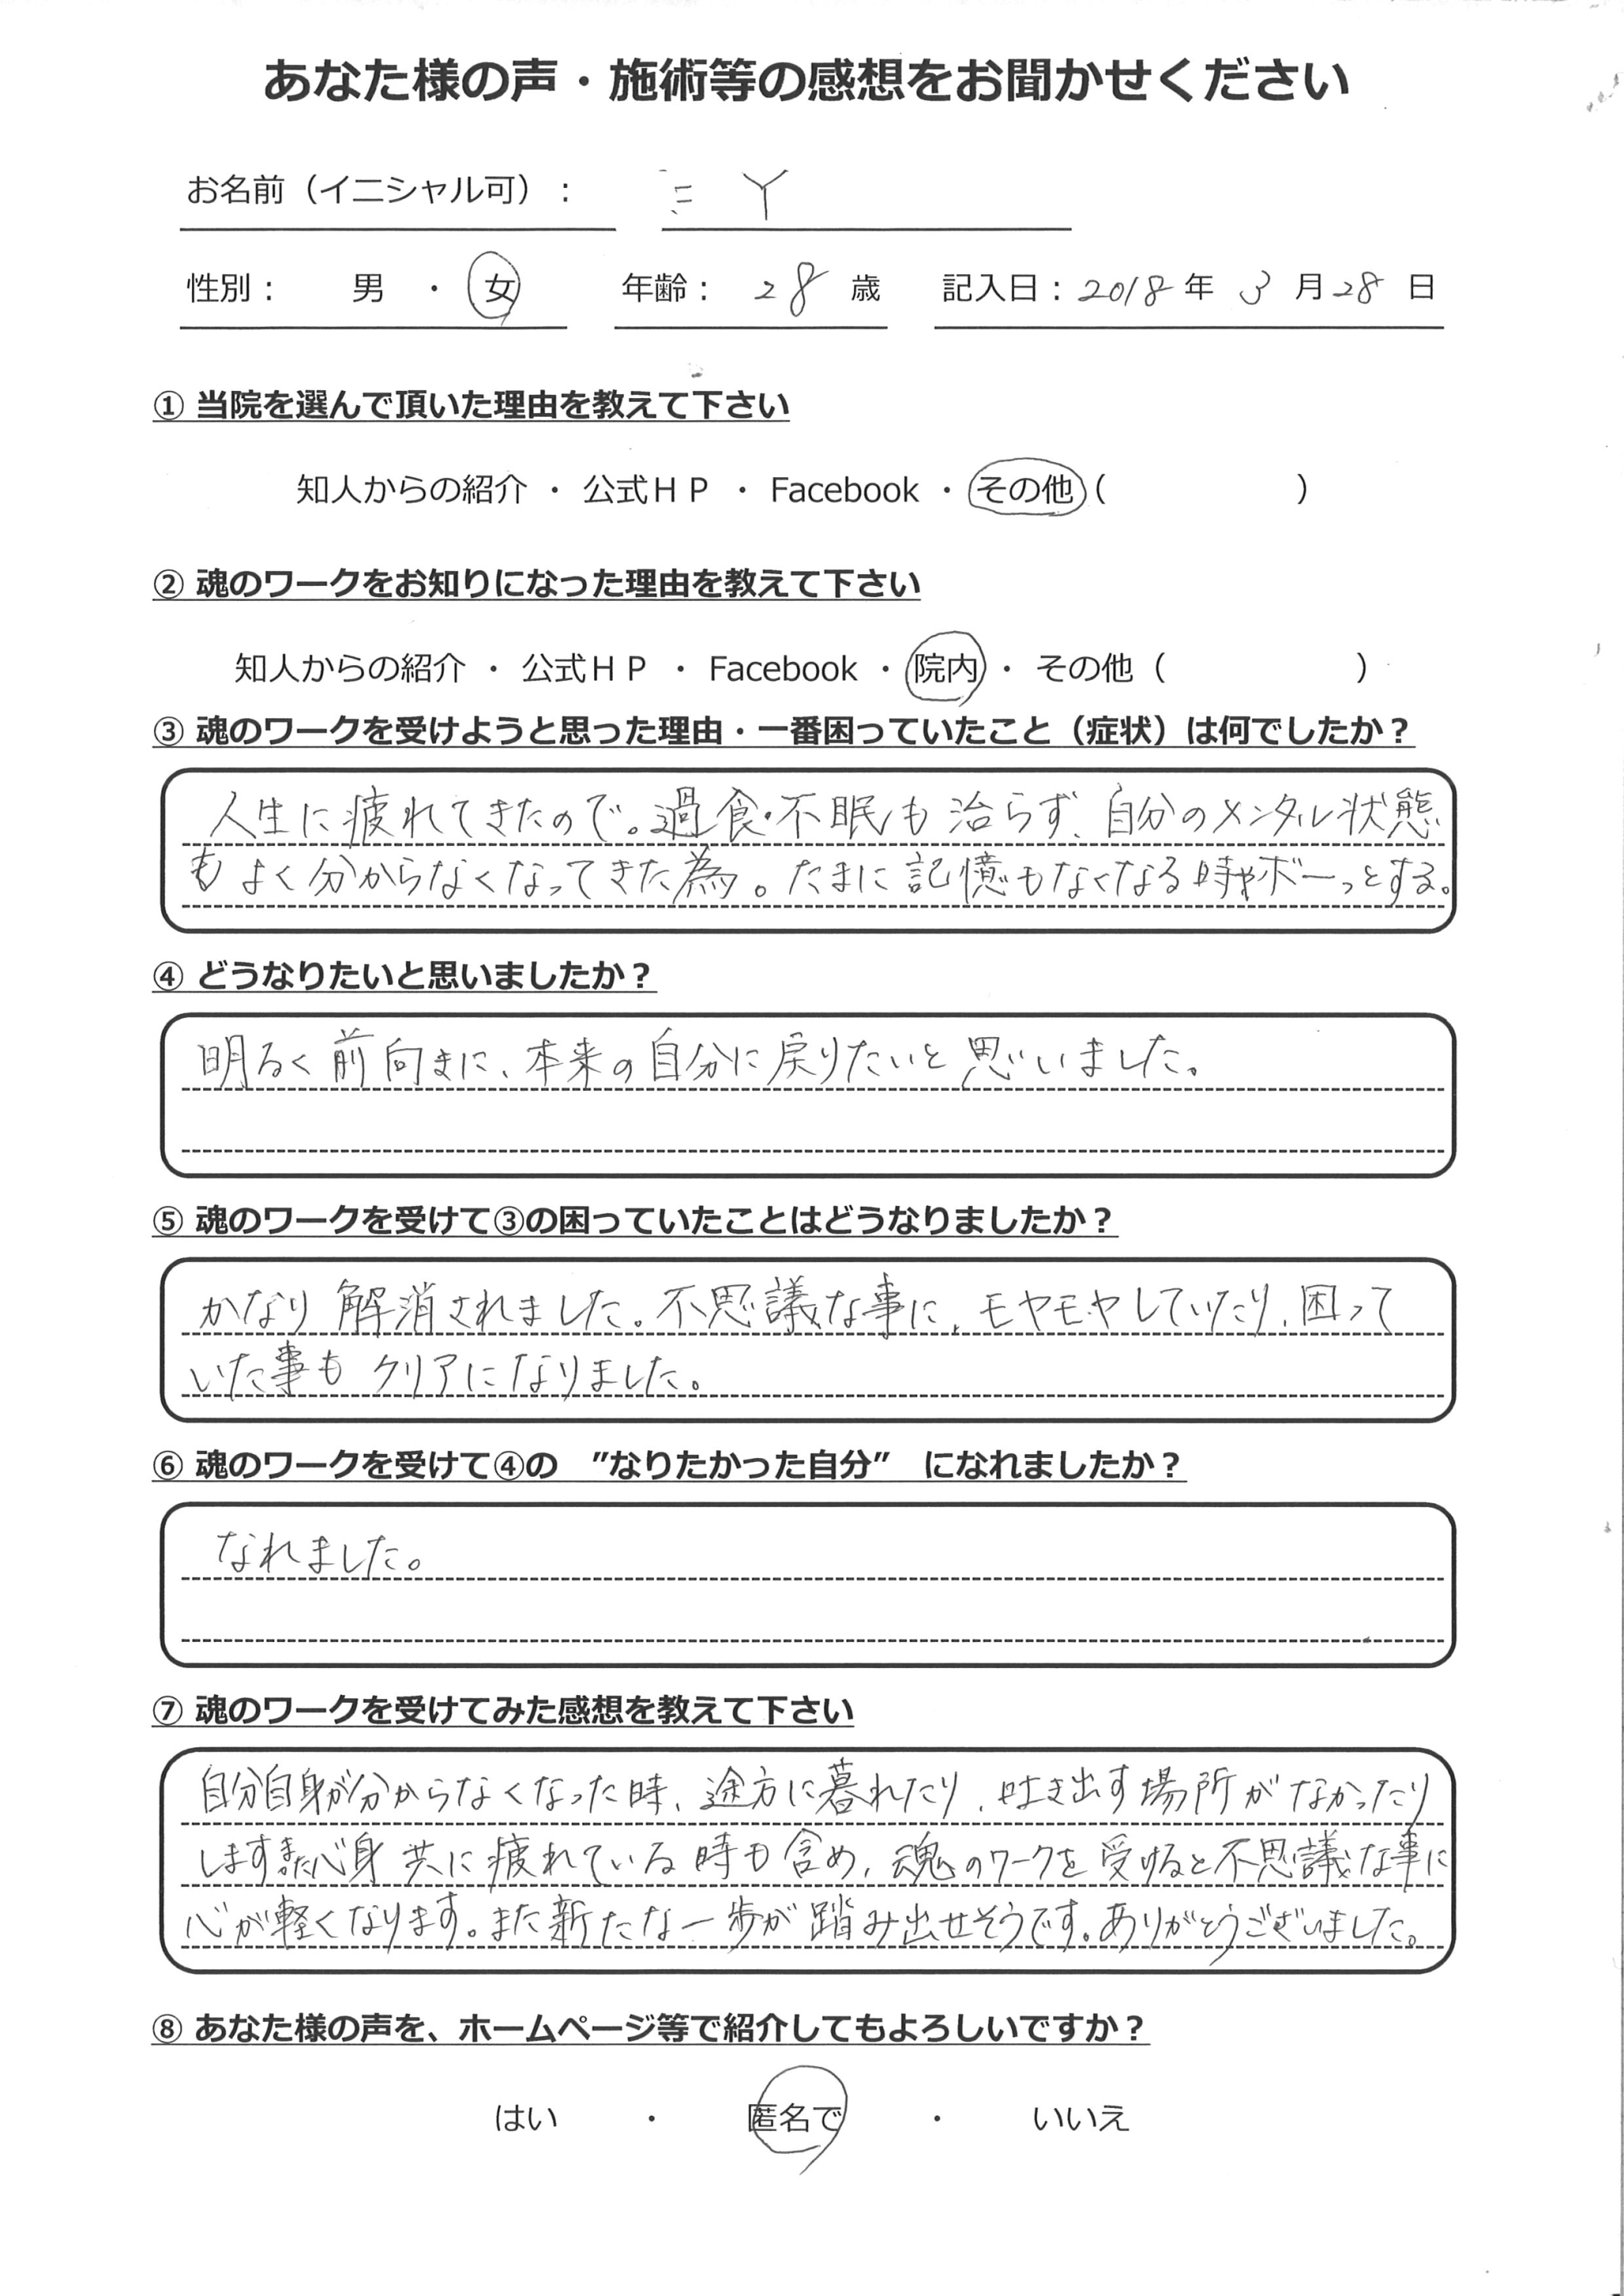 あなた様の声・施術等の感想をお聞かせください
お名前（イニシャル可）： Y
性別： 男 ・ 女 年齢： 28 歳 記入日：2018 年 3 月 28 日
① 当院を選んで頂いた理由を教えて下さい
知人からの紹介 ・ 公式ＨＰ ・ Facebook ・ その他（ ）
② 魂のワークをお知りになった理由を教えて下さい
知人からの紹介 ・ 公式ＨＰ ・ Facebook ・ 院内 ・ その他（ ）
③ 魂のワークを受けようと思った理由・一番困っていたこと（症状）は何でしたか？
人生に疲れてきたので。過食・不眠も治らず、自分のメンタル状態
もよく分からなくなってきた為。たまに記憶もなくなる時やボーっとする。
④ どうなりたいと思いましたか？
明るく前向きに、本来の自分に戻りたいと思いました。
⑤ 魂のワークを受けて③の困っていたことはどうなりましたか？
かなり解消されました。不思議な事に、モヤモヤしていたり、困って
いた事もクリアになりました。
⑥ 魂のワークを受けて④の ”なりたかった自分” になれましたか？
なれました。
⑦ 魂のワークを受けてみた感想を教えて下さい
自分自身が分からなくなった時、途方に暮れたり、吐き出す場所がなかったり
しますまた心身共に疲れている時も含め、魂のワークを受けると不思議な事に
心が軽くなります。また新たな一歩が踏み出せそうです。ありがとうございました。
⑧ あなた様の声を、ホームページ等で紹介してもよろしいですか？
はい ・ 匿名で ・ いいえ